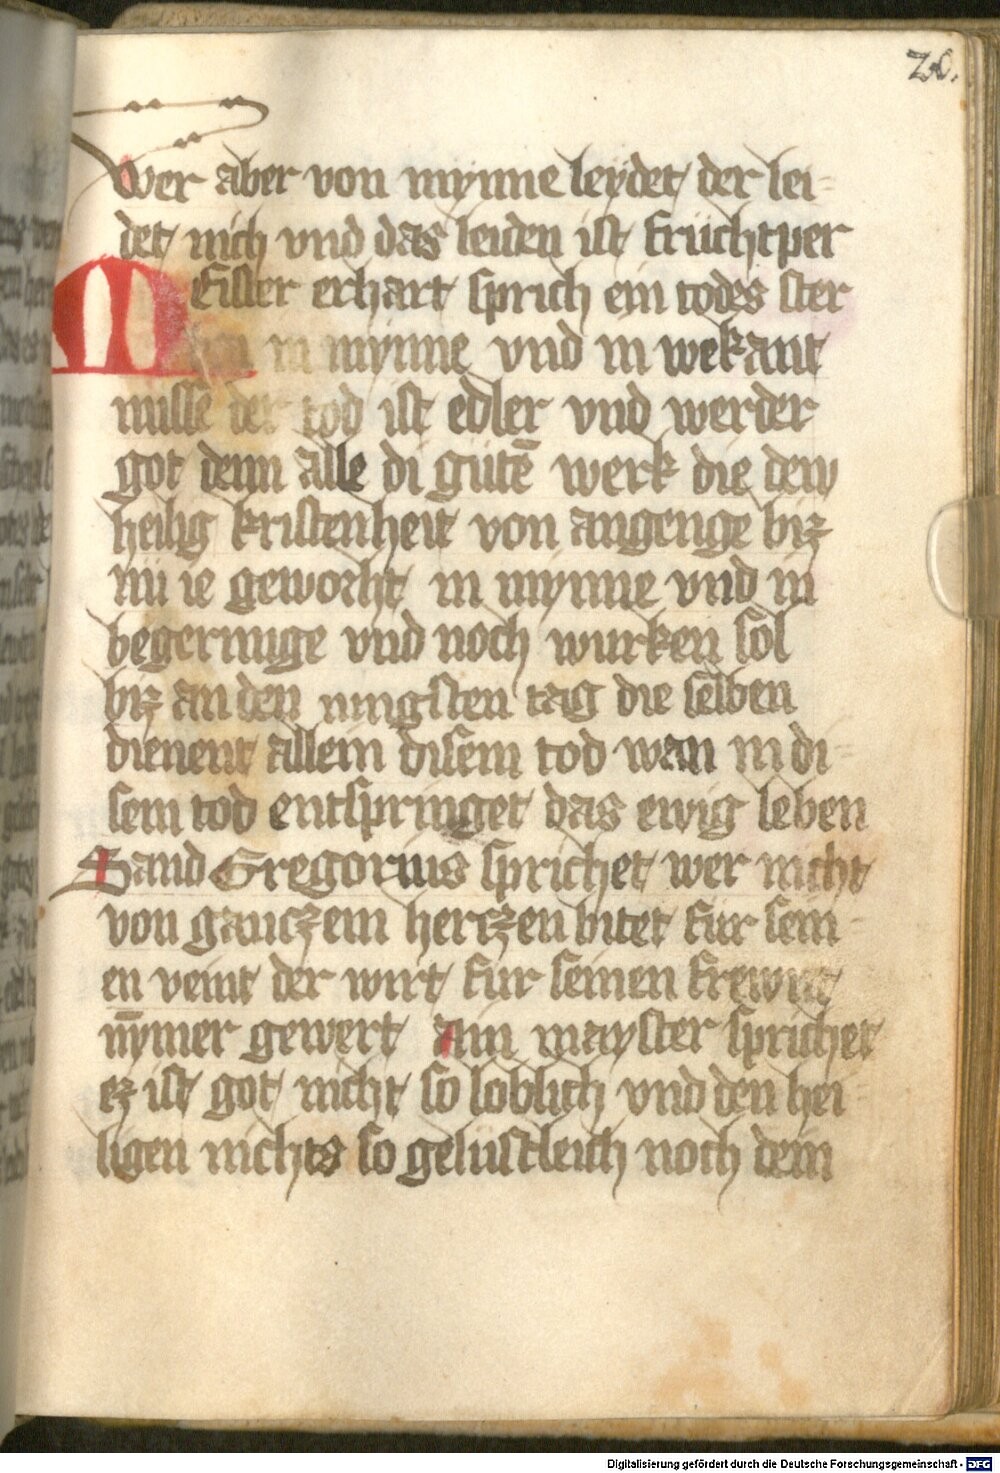 26.
Wer aber von mynne leydet der lei-
det nich vnd das leiden ist früchtper
MEister erhart sprich ein todes ster
in mynne vnd in wekant
nusse der tod ist edler vnd werder
got denn alle di gutē werk die dew
heilig kristenheit von angenge biz
nu ie geworht in mynne vnd in
begerunge vnd noch wurken sol
biz an den iungsten tag die selben
dienent allein disem tod wan in di-
sem tod entspringet das ewig leben
Sand Gregorius sprichet wer nicht
von ganczem herczen bitet fur sein-
en veint der wirt fur seinen frewnt
nȳmer gewert ain mayster sprichet
ez ist got nicht so loblich vnd den hei-
ligen nichts so gelüstleich noch dem
Digitalisierung gefördert durch die Deutsche Forschungsgemeinschaft - DFG